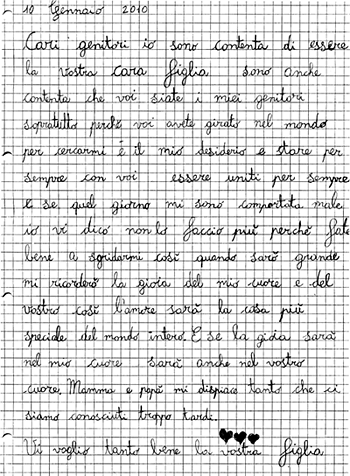 10 Gennaio 2010
Cari genitori io sono contenta di essere
la vostra cara figlia sono anche
contenta che voi siate i miei genitori
sopratutto perchè voi avete girato nel mondo
per cercarmi È il mio desiderio e stare per
sempre con voi essere uniti per sempre
E se quel giorno mi sono comportata male
io vi dico non lo faccio più perchè fate
bene a sgridarmi così quando sarò grande
mi ricorderò la gioia del mio cuore e del
vostro così l'amore sarà la cosa più
speciale del mondo intero. E se la gioia sarà
nel mio cuore sarà anche nel vostro
cuore. Mamma e papà mi dispiace tanto che ci
siamo conosciuti troppo tardi.
Vi voglio tanto bene la vostra figlia